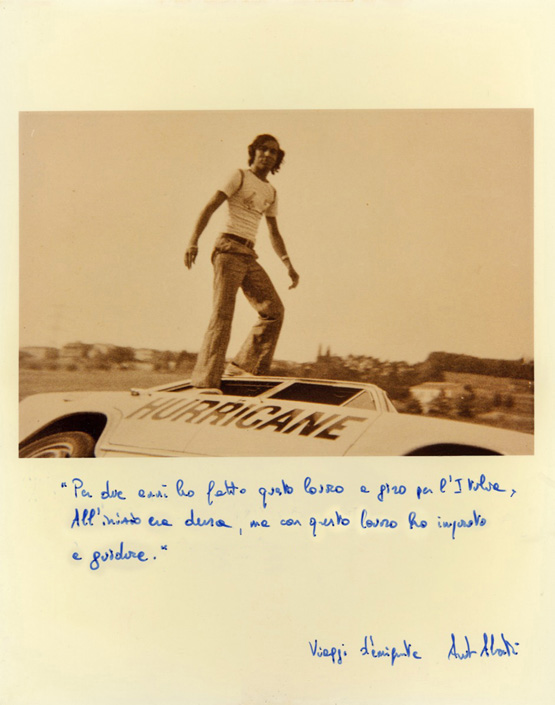 HURRICANE
"Per due anni ho fatto questo lavoro a giro per l'Italia,
All'inizio era dura, ma con questo lavoro ho imparato
a guidare."
Viaggi d'emigrante